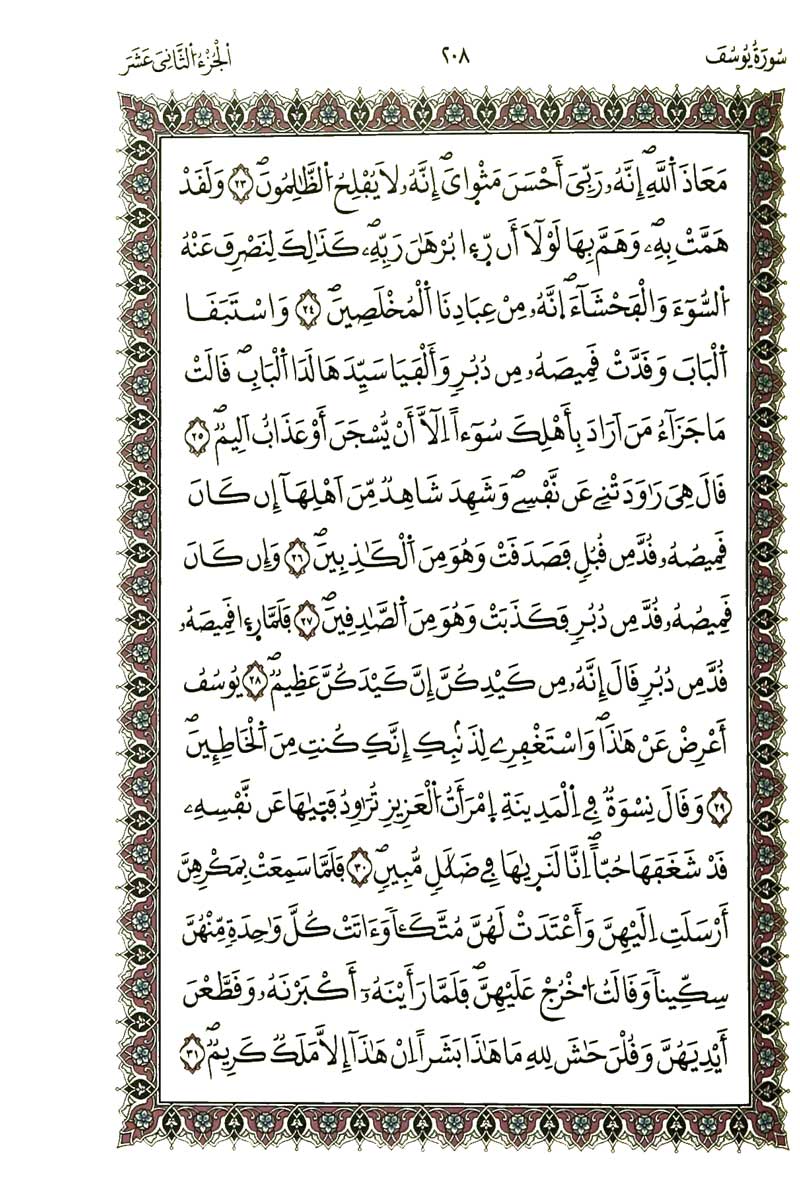 سُورَةُ يُوسُفَ
٢٠٨
اَلْجُزْءُ الثَّانِيَ عَشَرَ
مَعَاذَ اَللَّهِۖ إِنَّهُۥ رَبِّيَ أَحْسَنَ مَثْوِايَۖ إِنَّهُۥ لَا يُفْلِحُ اُلظَّالِمُونَۖ ٢٣ وَلَقَدْ
هَمَّتْ بِهِۦۖ وَهَمَّ بِهَا لَوْلَآ أَن رّ۪ء۪ا بُرْهَٰنَ رَبِّهِۦۖ كَذَٰلِكَ لِنَصْرِفَ عَنْهُ
اُلسُّوٓءَ وَالْفَحْشَآءَۖ اِنَّهُۥ مِنْ عِبَادِنَا اَلْمُخْلَصِينَۖ ٢٤ وَاسْتَبَقَا
اَلْبَابَ وَقَدَّتْ قَمِيصَهُۥ مِن دُبُرٍ وَأَلْفَيَا سَيِّدَهَا لَدَا اَلْبَابِۖ قَالَتْ
مَا جَزَآءُ مَنَ اَرَادَ بِأَهْلِكَ سُوٓءاً اِلَّآ أَنْ يُّسْجَنَ أَوْ عَذَابٌ اَلِيمٌۖ ٢٥
قَالَ هِيَ رَٰوَدَتْنِے عَن نَّفْسِےۖ وَشَهِدَ شَاهِدٌ مِّنَ اَهْلِهَآ إِن كَانَ
قَمِيصُهُۥ قُدَّ مِن قُبُلٍ فَصَدَقَتْ وَهُوَ مِنَ اَلْكَٰذِبِينَۖ ٢٦ وَإِن كَانَ
قَمِيصُهُۥ قُدَّ مِن دُبُرٍ فَكَذَبَتْ وَهُوَ مِنَ اَلصَّٰدِقِينَۖ ٢٧ فَلَمَّا ر۪ء۪ا قَمِيصَهُۥ
قُدَّ مِن دُبُرٍ قَالَ إِنَّهُۥ مِن كَيْدِكُنَّ إِنَّ كَيْدَكُنَّ عَظِيمٌۖ ٢٨ يُوسُفُ
أَعْرِضْ عَنْ هَٰذَاۖ وَاسْتَغْفِرِے لِذَنۢبِكِ إِنَّكِ كُنتِ مِنَ اَلْخَاطِـِٕينَۖ
٢٩ وَقَالَ نِسْوَةٌ فِے اِلْمَدِينَةِ اِمْرَأَتُ اُلْعَزِيزِ تُرَٰوِدُ فَت۪يٰهَا عَن نَّفْسِهِۦ
قَدْ شَغَفَهَا حُبّاًۖ اِنَّا لَنَر۪يٰهَا فِے ضَلَٰلٍ مُّبِينٍۖ ٣٠ فَلَمَّا سَمِعَتْ بِمَكْرِهِنَّ
أَرْسَلَتِ اِلَيْهِنَّ وَأَعْتَدَتْ لَهُنَّ مُتَّكَـٔاً وَءَاتَتْ كُلَّ وَٰحِدَةٍ مِّنْهُنَّ
سِكِّيناً وَقَالَتُ اُخْرُجْ عَلَيْهِنَّۖ فَلَمَّا رَأَيْنَهُۥٓ أَكْبَرْنَهُۥ وَقَطَّعْنَ
أَيْدِيَهُنَّ وَقُلْنَ حَٰشَ لِلهِ مَا هَٰذَا بَشَراً اِنْ هَٰذَآ إِلَّا مَلَكٌ كَرِيمٌۖ ٣١